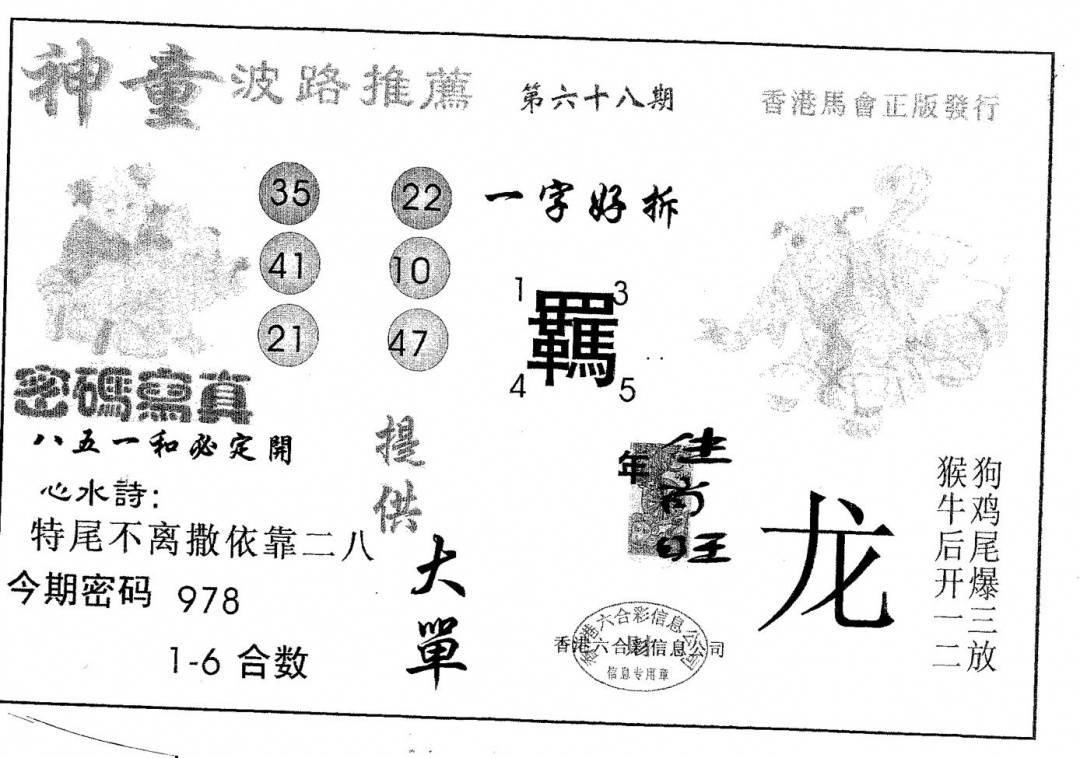 神童 波路推薦 第六十八期 香港馬會正版發行
35 22
41 10
21 47
一字好拆
1 3
羈
4 5
密碼寫真
八五一和必定開
心水詩:
特尾不离撒依靠二八
今期密码 978
1-6 合数
提供
大單
年
生肖旺
龙
狗鸡尾爆三放
猴牛后开一二
香港六合彩信息公司
香港六合彩信息公司
信息专用章